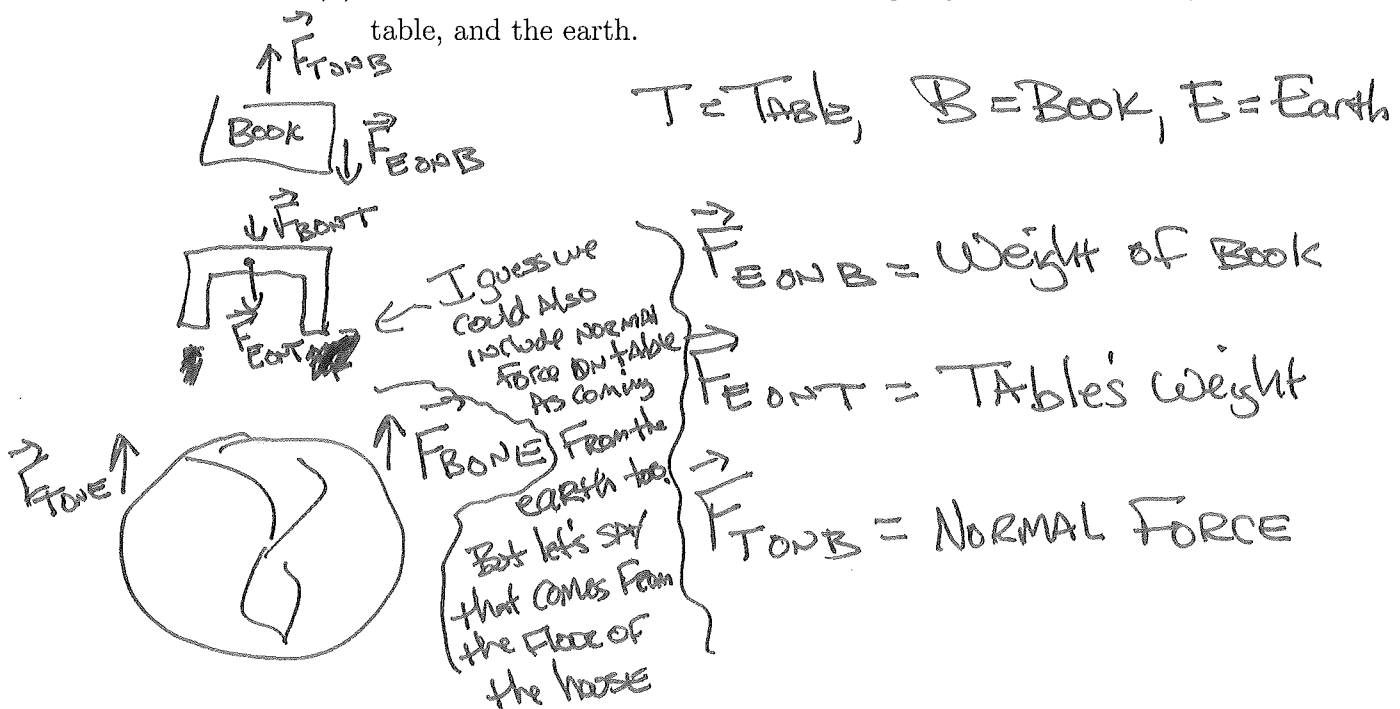 table, and the earth.
F TONB
T = TABLE, B = BOOK, E = Earth
BOOK
F EONB
F BONT
F EONT
I guess we
could Also
include NORMAL
Force ON table
As coming
From the
earth too.
But let's SAY
that comes From
the Floor of
the house
F EONB = Weight of Book
F EONT = TAble's Weight
F TONB = NORMAL FORCE
F TONE
F BONE